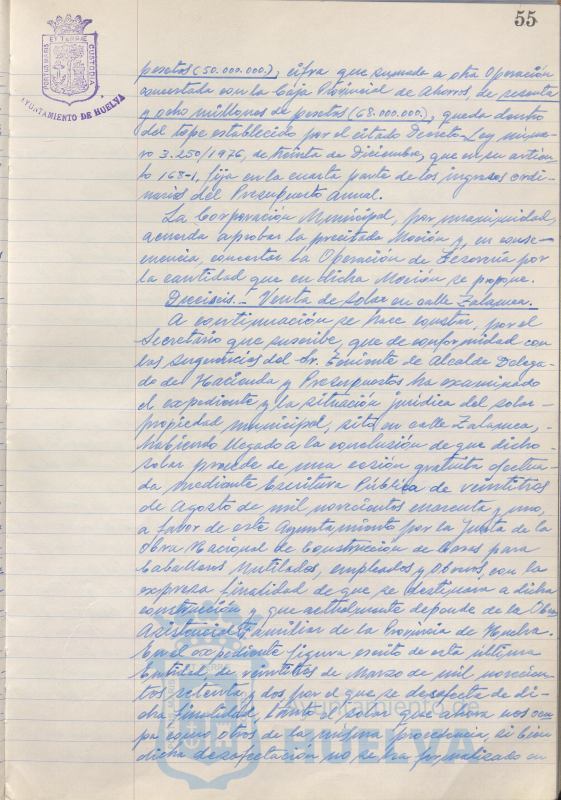 55
PORTUS MARIS ET TERRAE CUSTODIA
AYUNTAMIENTO DE HUELVA
pesetas (50.000.000.), cifra que sumada a otra Operación
concertada con la Caja Provincial de Ahorros, de sesenta
y ocho millones de pesetas (68.000.000.), queda dentro
del tope establecido por el citado Decreto-Ley núme-
ro 3.250/1976, de treinta de Diciembre, que en su artícu-
lo 168-1, fija en la cuarta parte de los ingresos ordi-
narios del Presupuesto Anual.
La Corporación Municipal, por unanimidad,
acuerda aprobar la precitada Moción y, en conse-
cuencia, concertar la Operación de Tesorería por
la cantidad que en dicha Moción se propone.
Dieciseis.- Venta de solar en calle Zalamea.
A continuación se hace constar, por el
Secretario que suscribe, que de conformidad con
las sugerencias del Sr. Teniente de Alcalde Delega-
do de Hacienda y Presupuestos ha examinado
el expediente y la situación jurídica del solar
propiedad municipal, sito en calle Zalamea,
habiendo llegado a la conclusión de que dicho
solar procede de una cesión gratuita efectua-
da mediante Escritura Pública de veintitres
de Agosto de mil novecientos cuarenta y uno,
a favor de este Ayuntamiento por la Junta de la
Obra Nacional de Construcción de Casas para
Caballeros Mutilados, empleados y Obreros, con la
expresa finalidad de que se destinara a dicha
construcción y que actualmente depende de la Obra
Asistencial Familiar de la Provincia de Huelva.
En el expediente figura escrito de esta última
Entidad, de veintitres de Marzo de mil novecien-
tos setenta y dos por el que se desafecta de di-
cha finalidad, tanto el solar que ahora nos ocu-
pa como otros de la misma procedencia, si bien
dicha desafectación no se ha formalizado en
Ayuntamiento de
HUELVA